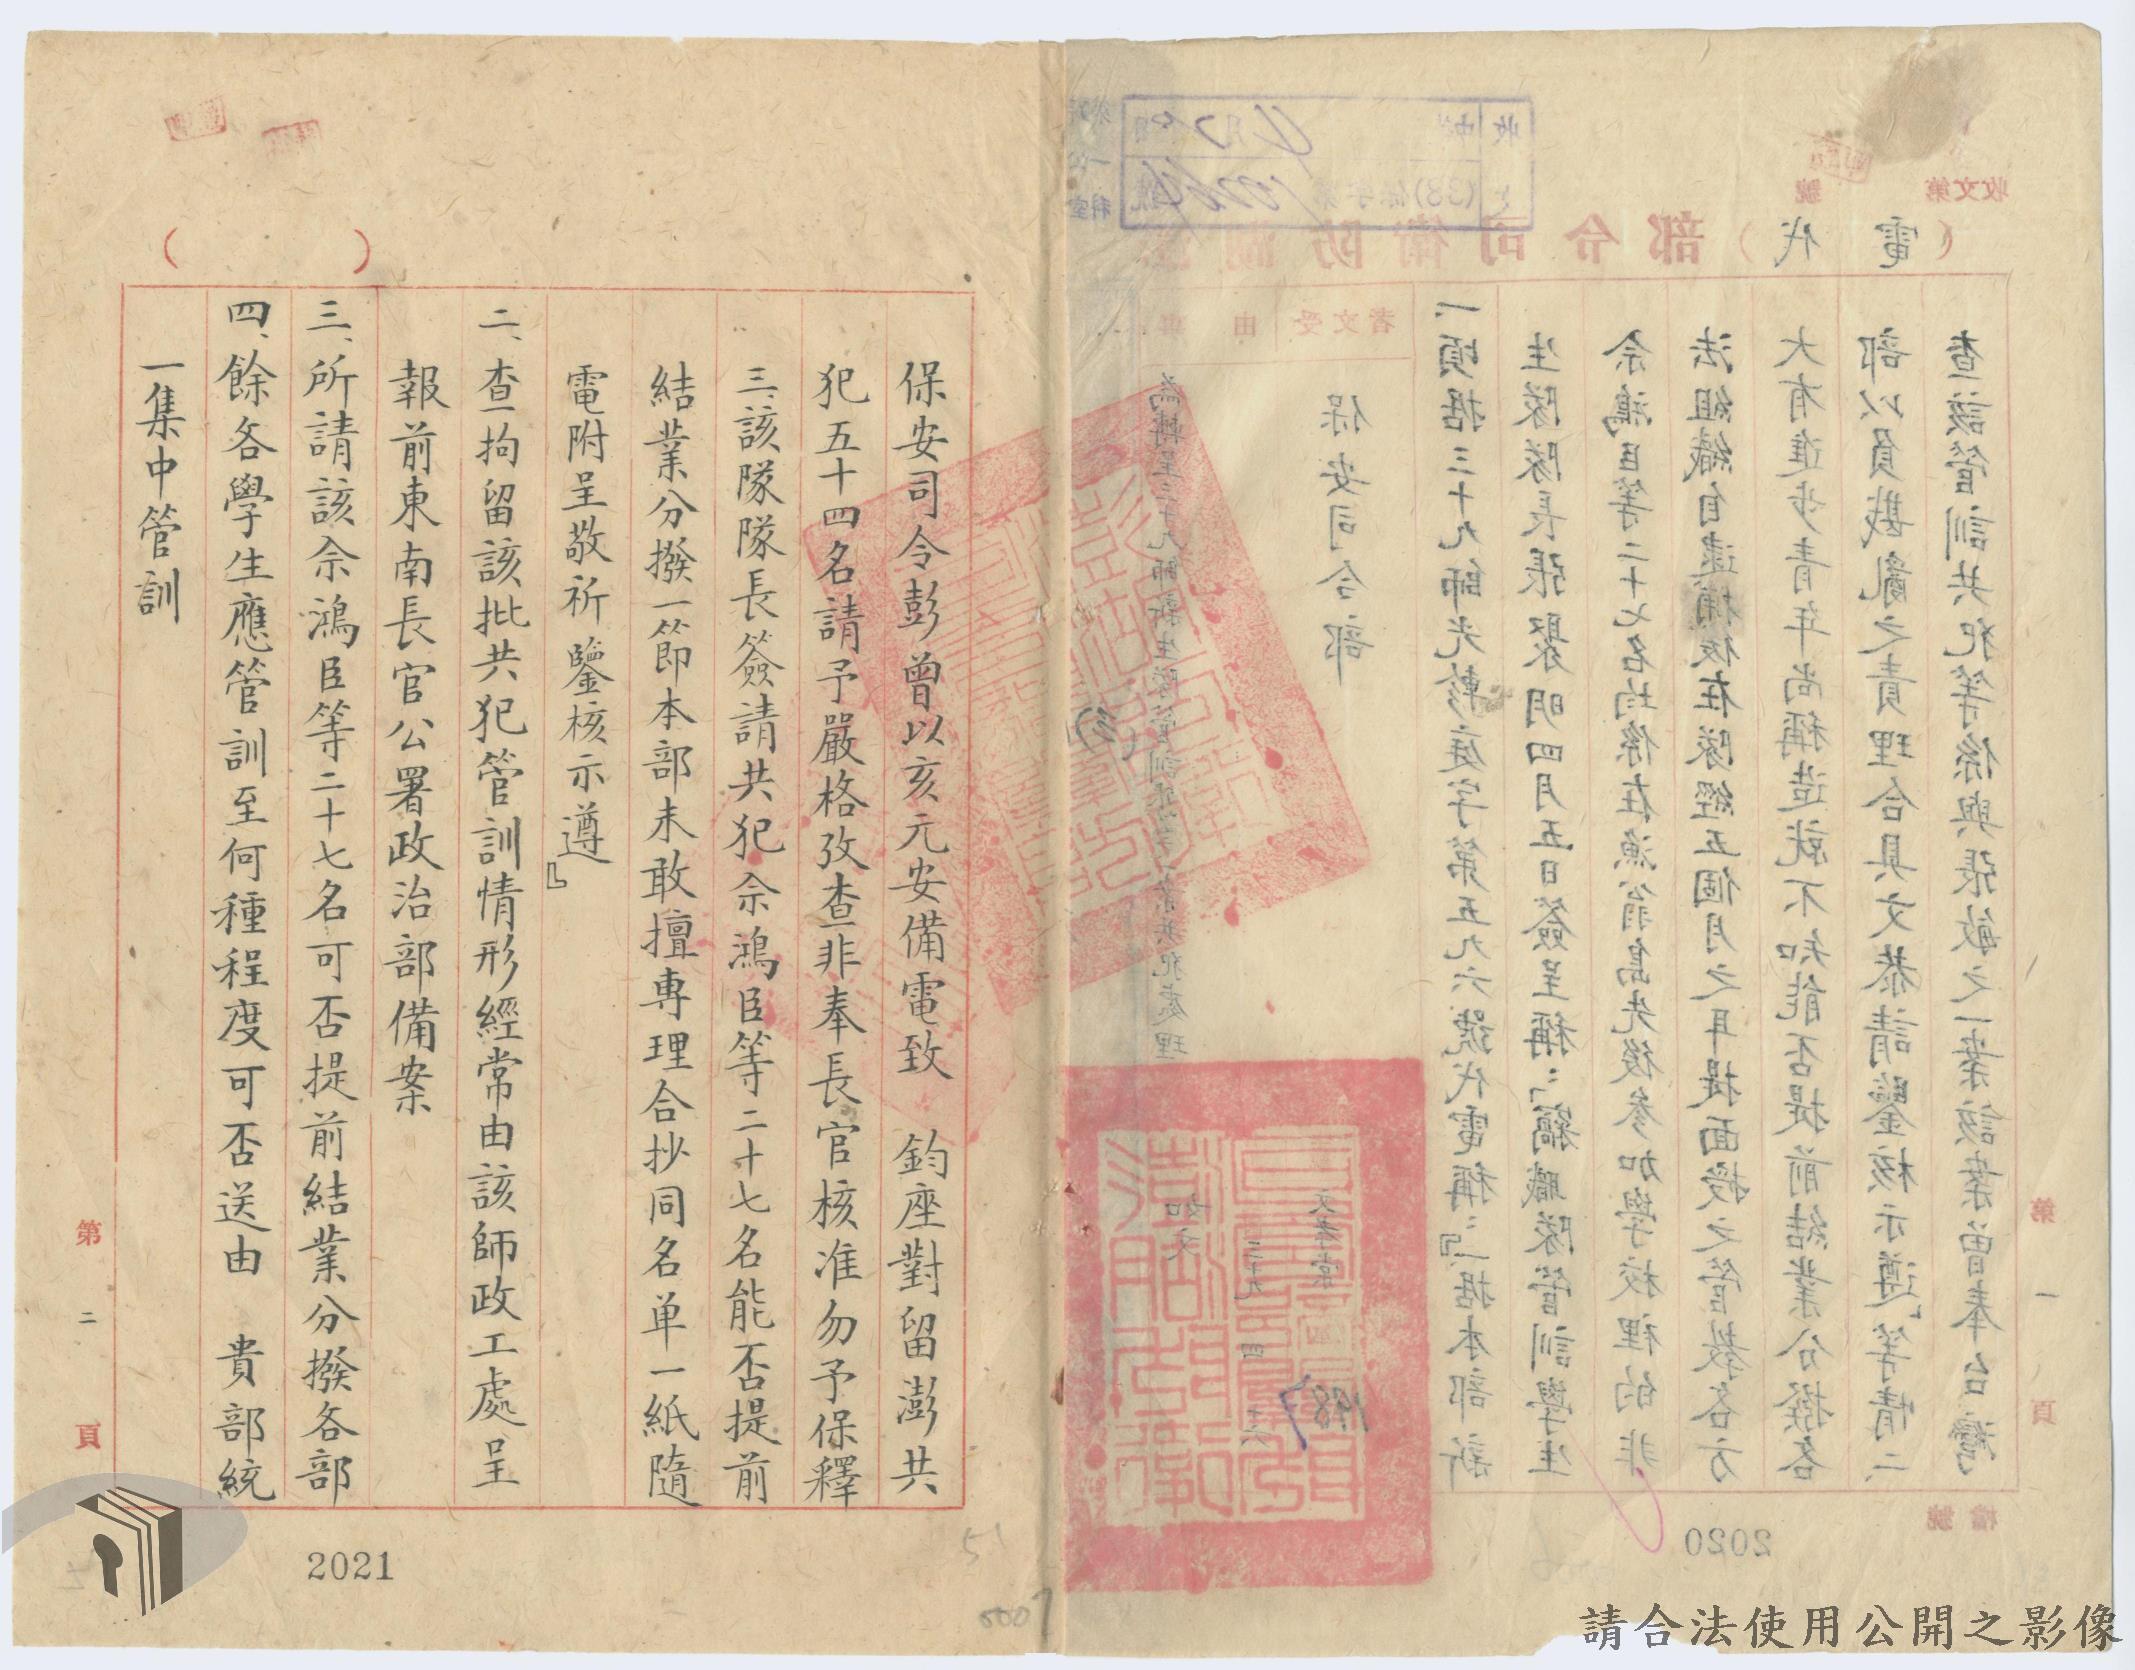 收文第 號
司令部（代電）
受文者
保安司令部
一、頃据三十九師光軫庭字第五九六號代電稱：『一据本部新
生隊隊長張聚明四月五日簽呈稱：「竊職隊管訓學生
佘鴻臣等二十七名均係在漁翁島先後參加學校裡的非
法組織自逮捕後在隊經五個月之耳提面授之管教各方
大有進步青年尚稱造就不知能否提前結業分撥各
部以負戡亂之責理合具文恭請鑒核示遵」等情二、
查該管訓共犯等係與張敏之一案該案曾奉台灣
第一頁
檔號
2020
保安司令彭曾以亥元安備電致　鈞座對留澎共
犯五十四名請予嚴格攷查非奉長官核准勿予保釋
三、該隊隊長簽請共犯佘鴻臣等二十七名能否提前
結業分撥一節本部未敢擅專理合抄同名单一紙隨
電附呈敬祈鑒核示遵』
二、查拘留該批共犯管訓情形經常由該師政工處呈
報前東南長官公署政治部備案
三、所請該佘鴻臣等二十七名可否提前結業分撥各部
四、餘各學生應管訓至何種程度可否送由　貴部統
一集中管訓
第二頁
2021
請合法使用公開之影像